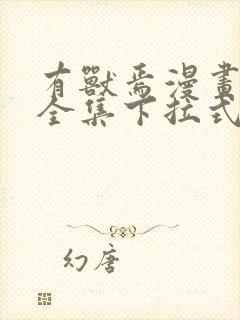 有獸焉漫畫
全集下拉式
幻唐